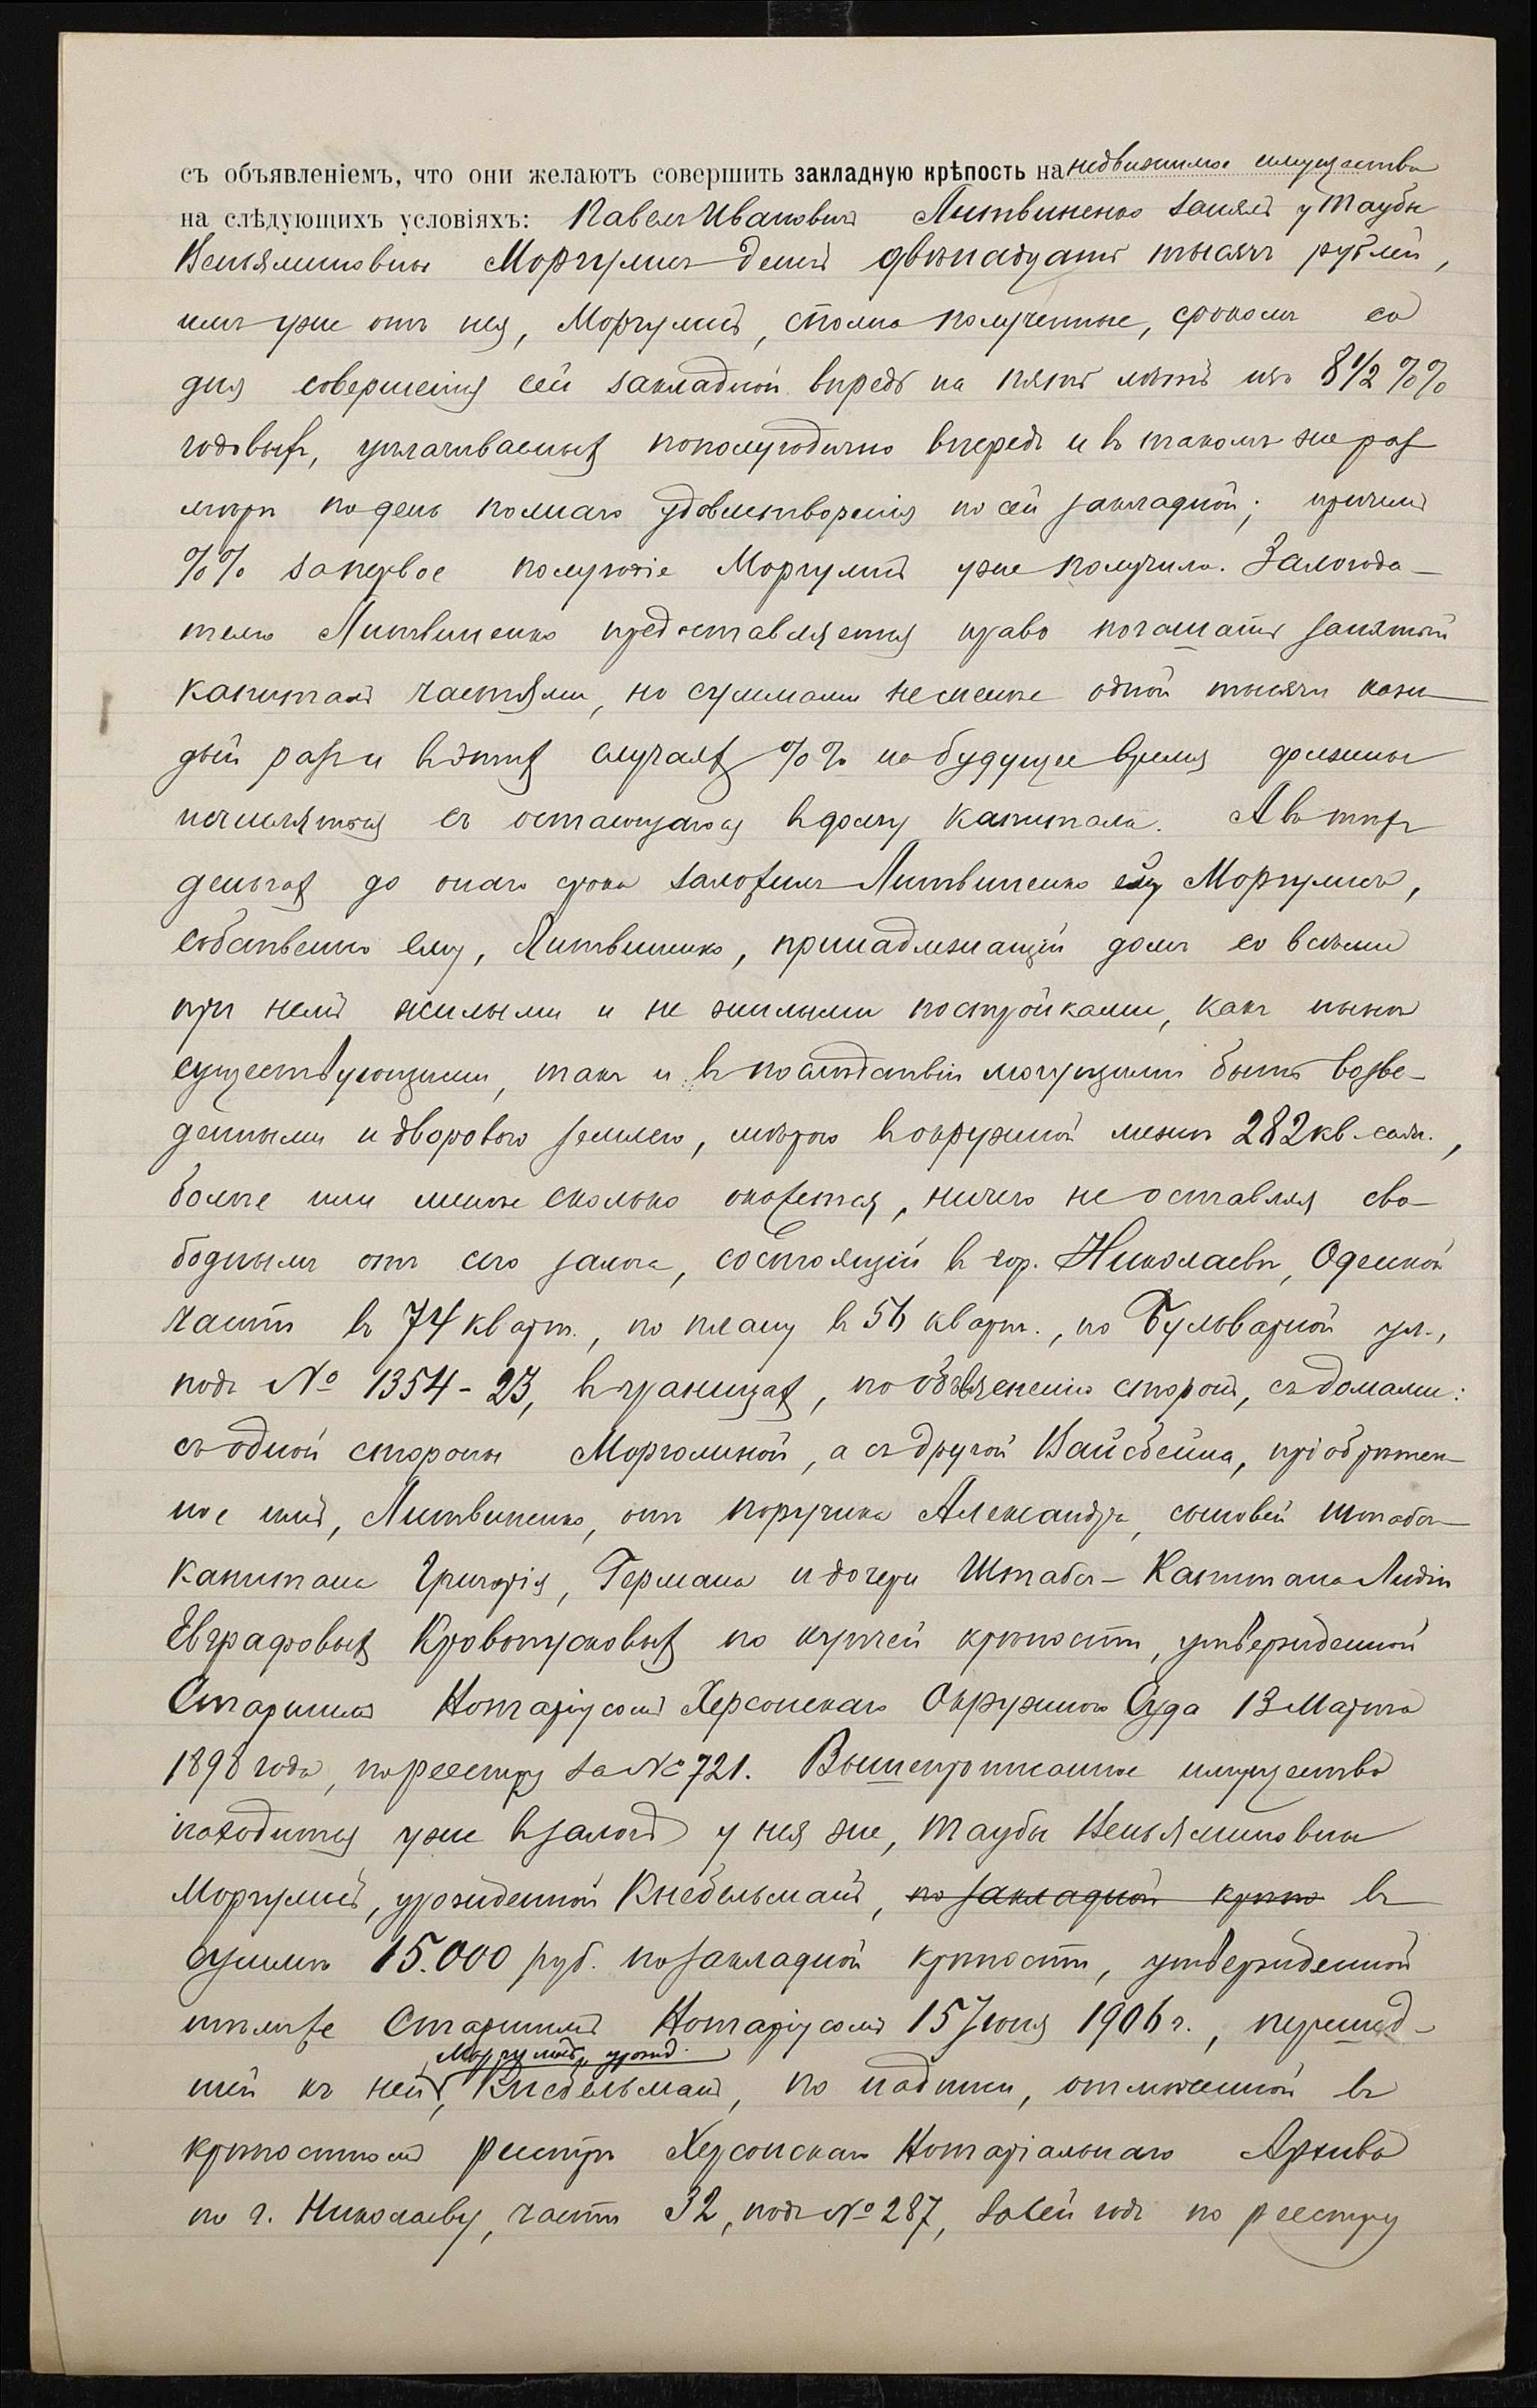 съ объявленіемъ, что они желаютъ совершить закладную крѣпость на недвижимое имущество
на слѣдующихъ условіяхъ: Павелъ Ивановичъ Литвиненко занялъ у Таубы
Веньяминовны Моргулисъ денегъ двѣнадцать тысячъ рублей,
имъ уже отъ нея, Моргулисъ, сполна полученные, срокомъ со
дня совершенія сей закладной впредь на пять лѣтъ изъ 8 1/2 %%
годовыхъ, уплачиваемыхъ пополугодично впередъ и въ такомъ же раз
мѣрѣ по день полнаго удовлетворенія по сей закладной; причемъ
%% за первое полугодіе Моргулисъ уже получила. Залогода-
телю Литвиненко предоставляется право погашать занятый
капиталъ частями, но суммами не менѣе одной тысячи каж
дый разъ и въ этихъ случаяхъ %% на будущее время должны
исчисляться съ остающагося въ долгу капитала. А въ тѣхъ
деньгахъ до онаго срока заложилъ Литвиненко ей Моргулисъ,
собственно ему, Литвиненко, принадлежащій домъ со всѣми
при немъ жилыми и не жилыми постройками, какъ нынѣ
существующими, такъ и въ послѣдствіи могущими быть возве-
денными и дворовою землею, мѣрою въ окружной межѣ 282 кв. саж.,
болѣе или менѣе сколько окажется, ничего не оставляя сво-
боднымъ отъ сего залога, состоящій въ гор. Николаевѣ, Одесской
части въ 74 кварт., по плану въ 56 кварт., по Бульварной ул.,
подъ № 1354-23, въ границахъ, по объясненію сторонъ, съ домами:
съ одной стороны Марголиной, а съ другой Вайсбейна, пріобрѣтен-
ное имъ, Литвиненко, отъ поручика Александра, сыновей Штабсъ-
капитана Григорія, Германа и дочери Штабсъ-Капитана Лидіи
Евграфовыхъ Кровопусковыхъ по купчей крѣпости, утвержденной
Старшимъ Нотаріусомъ Херсонскаго Окружного Суда 13 Марта
1898 года, по реестру за № 721. Вышепрописанное имущество
находится уже въ залогѣ у нея же, Таубы Веньяминовны
Моргулисъ, урожденной Кнебельманъ, по закладной крѣпо въ
суммѣ 15.000 руб. по закладной крѣпости, утвержденной
тѣмъ же Старшимъ Нотаріусомъ 15 Іюня 1906 г., перешед-
Моргулисъ, урожд.
шей къ ней, Кнебельманъ, по надписи, отмѣченной въ
крѣпостномъ реестрѣ Херсонскаго Нотаріальнаго Архива
по г. Николаеву, часть 32, подъ № 287, за сей годъ по реестру